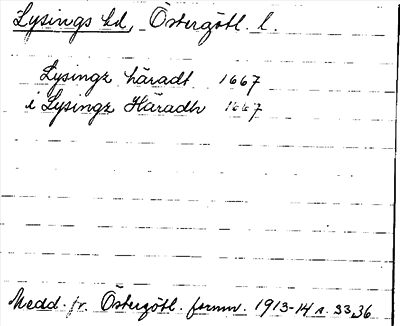 Lysings hd, Östergötl. l.
Lysingz häradt 1667
i Lysingz Häradh 1667
Medd. fr. Östergötl. fornm. 1913-14 s. 33, 36